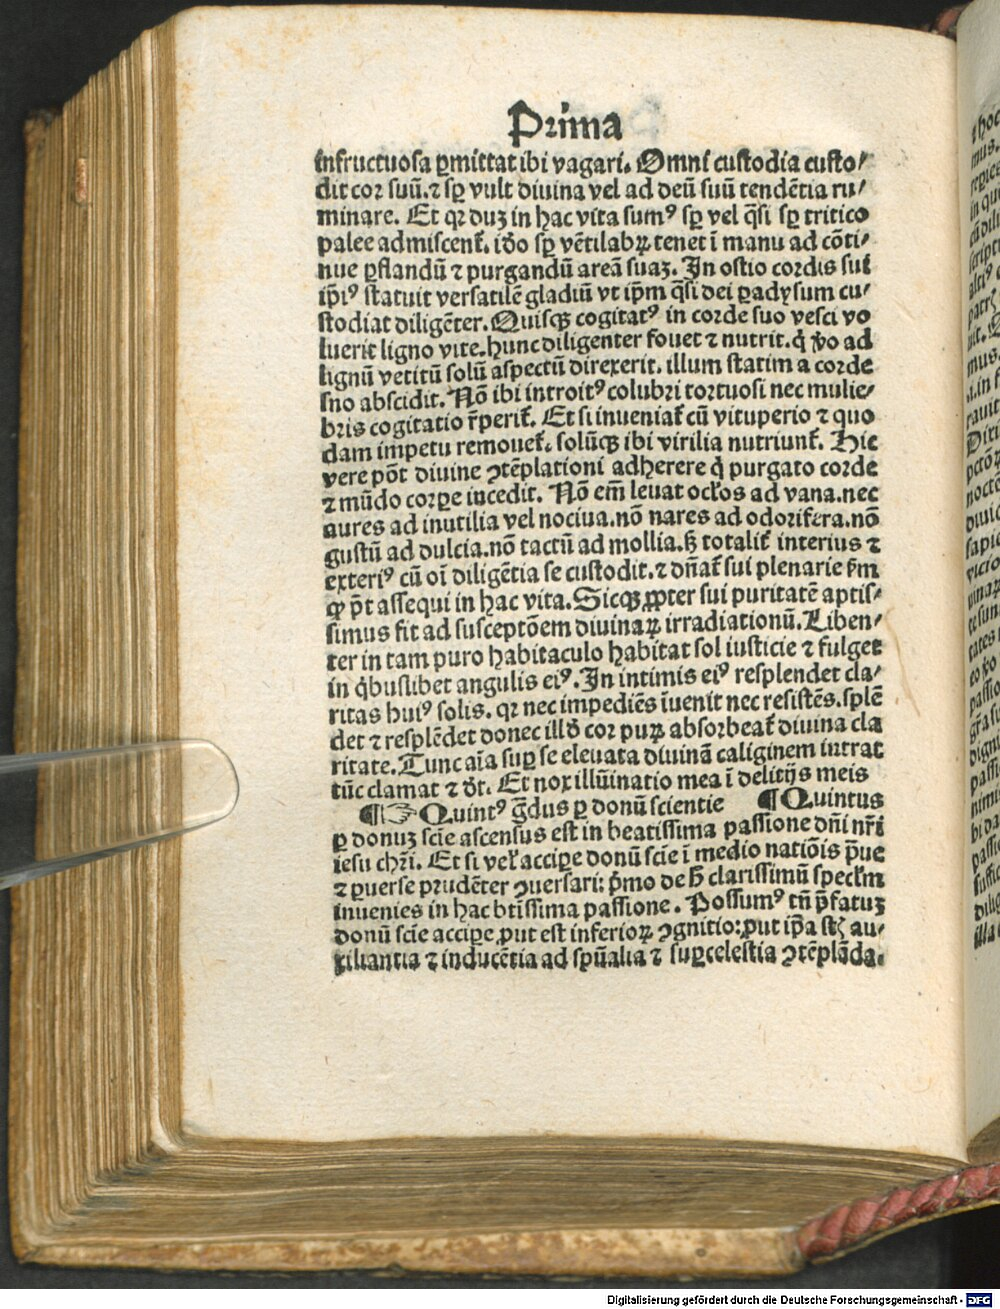 Prima
infructuosa ꝑmittat ibi vagari. Omni custodia custo⸗
dit cor suū.⁊ sꝑ vult diuina vel ad deū suū tendētia ru⸗
minare. Et qꝛ duꝫ in hac vita sumꝰ sꝑ vel q̄si sꝑ tritico
palee admiscent᷑. iđo sꝑ vētilabꝝ tenet ī manu ad cōti⸗
nue ꝑflandū ⁊ purgandū areā suaꝫ. In ostio cordis sui
ip̄iꝰ statuit versatilē gladiū vt ip̄m q̄si dei ꝑadysum cu⸗
stodiat diligēter. Quisqꝫ cogitatꝰ in corde suo vesci vo
luerit ligno vite. hunc diligenter fouet ⁊ nutrit. q̇ v̊o ad
lignū vetitū solū aspectū direxerit. illum statim a corde
sno abscidit. Nō ibi introitꝰ colubri tortuosi nec mulie⸗
bris cogitatio r̄perit᷑. Et si inueniat᷑ cū vituperio ⁊ quo
dam impetu remouet᷑. solūqꝫ ibi virilia nutriunt᷑. Hic
vere pōt diuine ꝯtēplationi adherere q̇ purgato corde
⁊ mūdo corꝑe incedit. Nō em̄ leuat ocłos ad vana. nec
aures ad inutilia vel nociua. nō nares ad odorifera. nō
gustū ad dulcia. nō tactū ad mollia. ꝫ totalit᷑ interius ⁊
exteriꝰ cū oī diligētia se custodit. ⁊ dn̄at᷑ sui plenarie ẜm
ꝙ p̄t assequi in hac vita. Sicqꝫ ꝓpter sui puritatē aptis⸗
simus fit ad susceptōem diuinaꝝ irradiationū. Liben⸗
ter in tam puro habitaculo habitat sol iusticie ⁊ fulget
in q̇buslibet angulis eiꝰ. In intimis eiꝰ resplendet cla⸗
ritas huiꝰ solis. qꝛ nec impediēs īuenit nec resistēs. splē
det ⁊ resplēdet donec illđ cor puꝝ absorbeat᷑ diuina cla
ritate. Tunc aīa suꝑ se eleuata diuinā caliginem intrat
tūc clamat ⁊ đt. Et nox illūinatio mea ī delitijs meis
¶☞ Quintꝰ g̈dus ꝑ donū scientie ¶ Quintus
ꝑ donuꝫ scīe ascensus est in beatissima passione dn̄i nr̄i
iesu chr̄i. Et si vel᷑ accipe donū scīe ī medio natiōis p̄ue
⁊ ꝑuerse prudēter ꝯuersari: p̄mo de h̄ clarissimū specłm
inuenies in hac btīssima passione. Possumꝰ tn̄ p̄fatuꝫ
donū scīe accipe, ꝓut est inferioꝝ ꝯgnitio: ꝓut ip̄a st̄ꝫ au⸗
xiliantia ⁊ inducētia ad sp̄ualia ⁊ suꝑcelestia ꝯtēplāda.